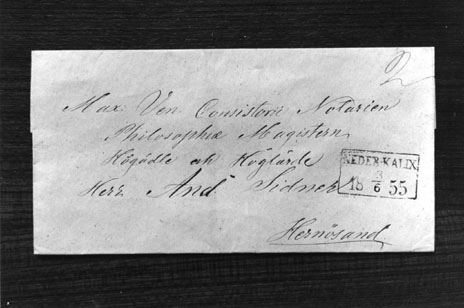 2
Max. Ven. Consistorii Notarien
Philosophiæ Magistern
Högädle och Höglärde
Herr And. Sidner
NEDER-KALIX
3
18 6 55
Hernösand